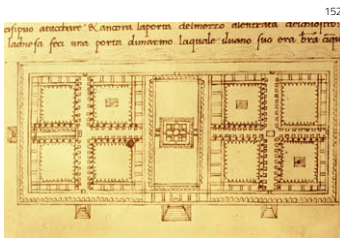 152
esipuo atacchare & ancora laporta delmezo alentrata delchiostro
lachiesa feci una porta dimarmo laquale iluano suo era bra cinqu